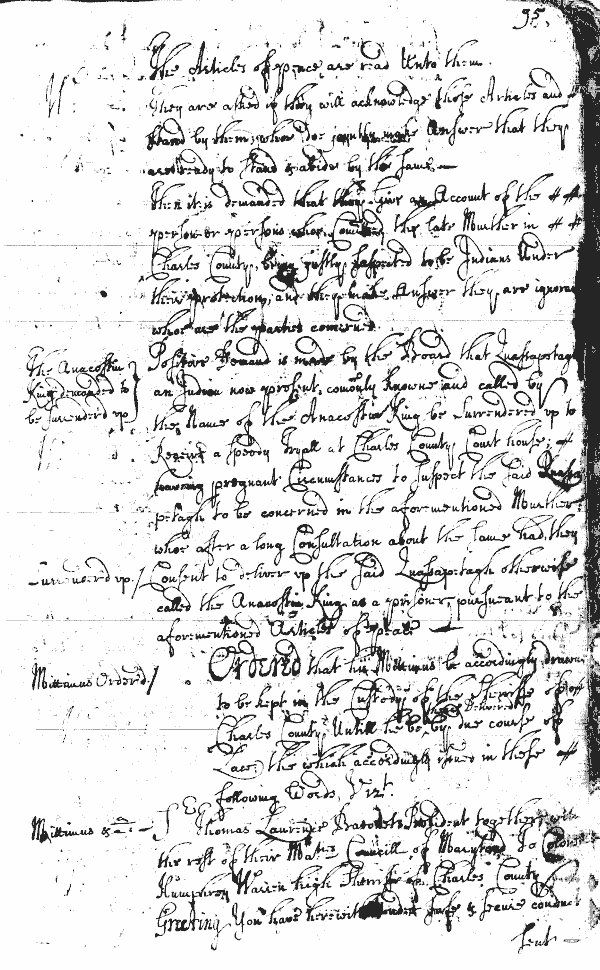 95.
The Articles of peace are read Unto them.
They are asked if they will acknowledge those Articles and
stand by them, who doe Answer that they
are ready to stand & abide by the same
Then it is demanded that they Give an Account of the
person or persons who the late Murther in
Charles County, being justly suspected to be Indians Under
their protection, and they make Answer they are ignorant
who are the parties concerned.
Positive Demand is made by the Board that Quassapetagh
The Anacostin
King demanded to
be Surrendered up
an Indian now present, comonly knowne and called by
the Name of the Anacostin King be Surrendered up to
Receive a speedy tryall at Charles County Court house,
having pregnant Circumstances to suspect the said Quassa
petagh to be concerned in the aforementioned Murther
who after a long Consultation about the same had, they
Surrendred up.
Consent to deliver up the said Quassapetagh otherwise
called the Anacostin King as a prisoner, pursuant to the
aforementioned Articles of peace
Mittimus Ordered
Ordered that his Mittimus be accordingly drawne
to be kept in the Custody of the Sherife of
Charles County Untill he be Delivered by due course of
Law, the which accordingly issued in these
following Words, Vizt.
Mittimus &c.
Ss Thomas Lawrence Baronet President together with
the rest of their Maties Councill of Maryland To Colonel
Humphrey Warren high Sherife of Charles County
Greeting You have herewith under safe & secure conduct
sent